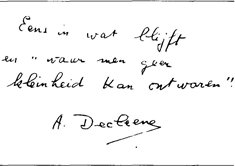 Eens in wat blijft
en "waar men geen
kleinheid kan ontwaren".
A.